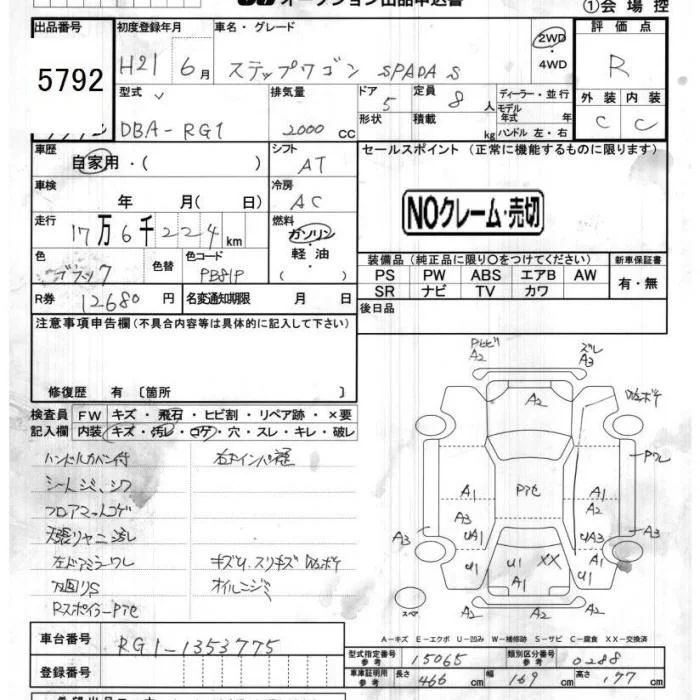 オークション出品申込書
①会場控
出品番号 初度登録年月 車名・グレード 評価点
5792
H21 6月 ステップワゴン SPADA S 2WD・4WD R
型式 排気量 ドア 定員 ディーラー・並行
DBA-RG1 2000 CC 5 8人 モデル年式 年式
形状 積載 kg ハンドル 左・右
外装 内装
C C
車歴 シフト セールスポイント (正常に機能するものに限ります)
自家用・( ) AT
車検 冷房
年 月( 日) AC
NOクレーム・売切
走行 燃料
17万6千224km ガソリン・軽油・( )
色 色替 色コード
ブラック PB81P
装備品(純正品に限り○をつけてください) 新車保証書
PS PW ABS エアB AW 有・無
SR ナビ TV カワ
R券 12680円 名変通知期限 月 日
後日品
注意事項申告欄(不具合内容等は具体的に記入して下さい)
修復歴 有〔箇所 〕
検査員記入欄 FW キズ・飛石・ヒビ割・リペア跡・×要
内装 キズ・汚レ・コゲ・穴・スレ・キレ・破レ
ハンドルカバー付
シートシミ、シワ
フロアマットコゲ
左ドアミラーワレ
キズU、スリキズ
オイルニジミ
RスポイラーPヤセ
ヒビ
A2
ズレ
A3
A2
Pワレ
A1
Pヤセ
A1
A3
A3
UA1
UA3
A3
U1
U1
XX
A1
U1
A2
スペ
A-キズ E-エクボ U-凹み W-補修跡 S-サビ C-腐食 XX-交換済
車台番号 RG1-1353775
登録番号
型式指定番号 参考 15065 類別区分番号 参考 0288
車庫証明用 参考 長さ 466cm 幅 169cm 高さ 177cm